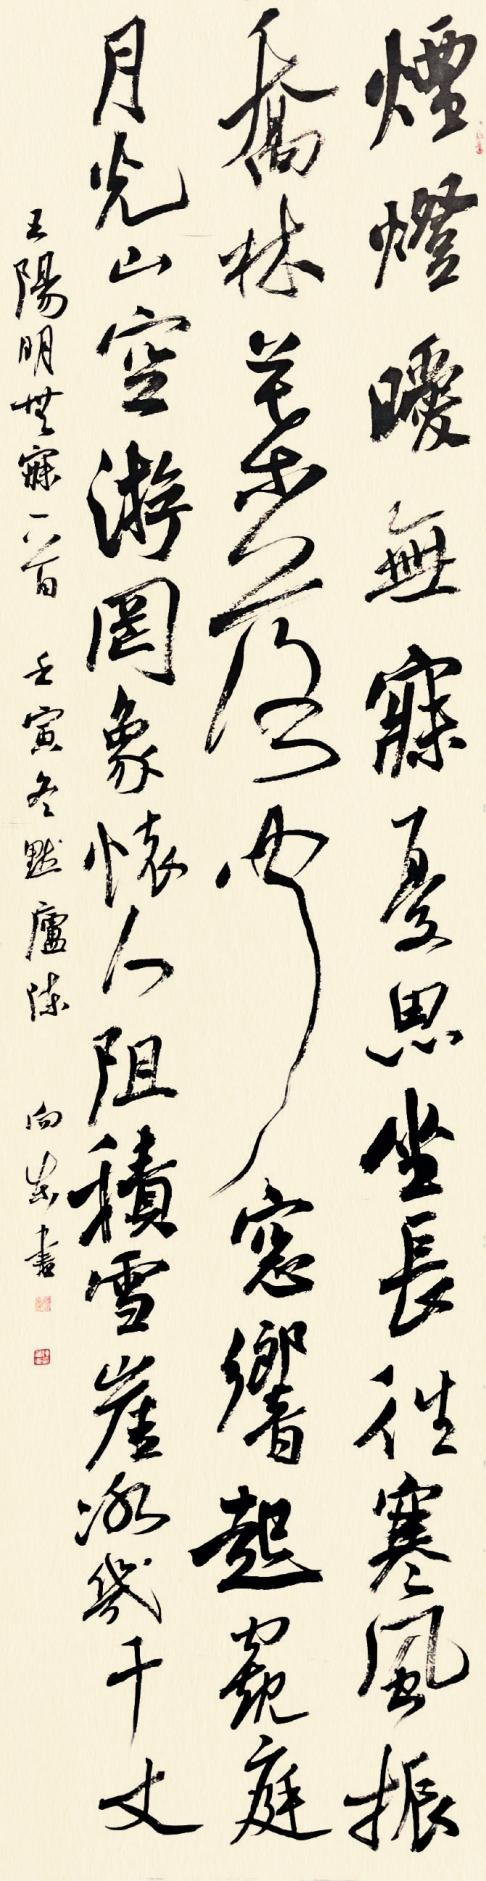 煙燈曖無寐憂思坐長往寒風振
喬林葉落聞窓響起窺庭
月光山空游罔象懷人阻積雪崖冰幾千丈
王陽明無寐一首 壬寅冬默廬陳向東書